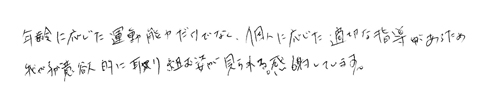 年齢に応じた運動能力だけでなく、個人に応じた適切な指導があるため
我が子が意欲的に取り組む姿が見られる。感謝しています。